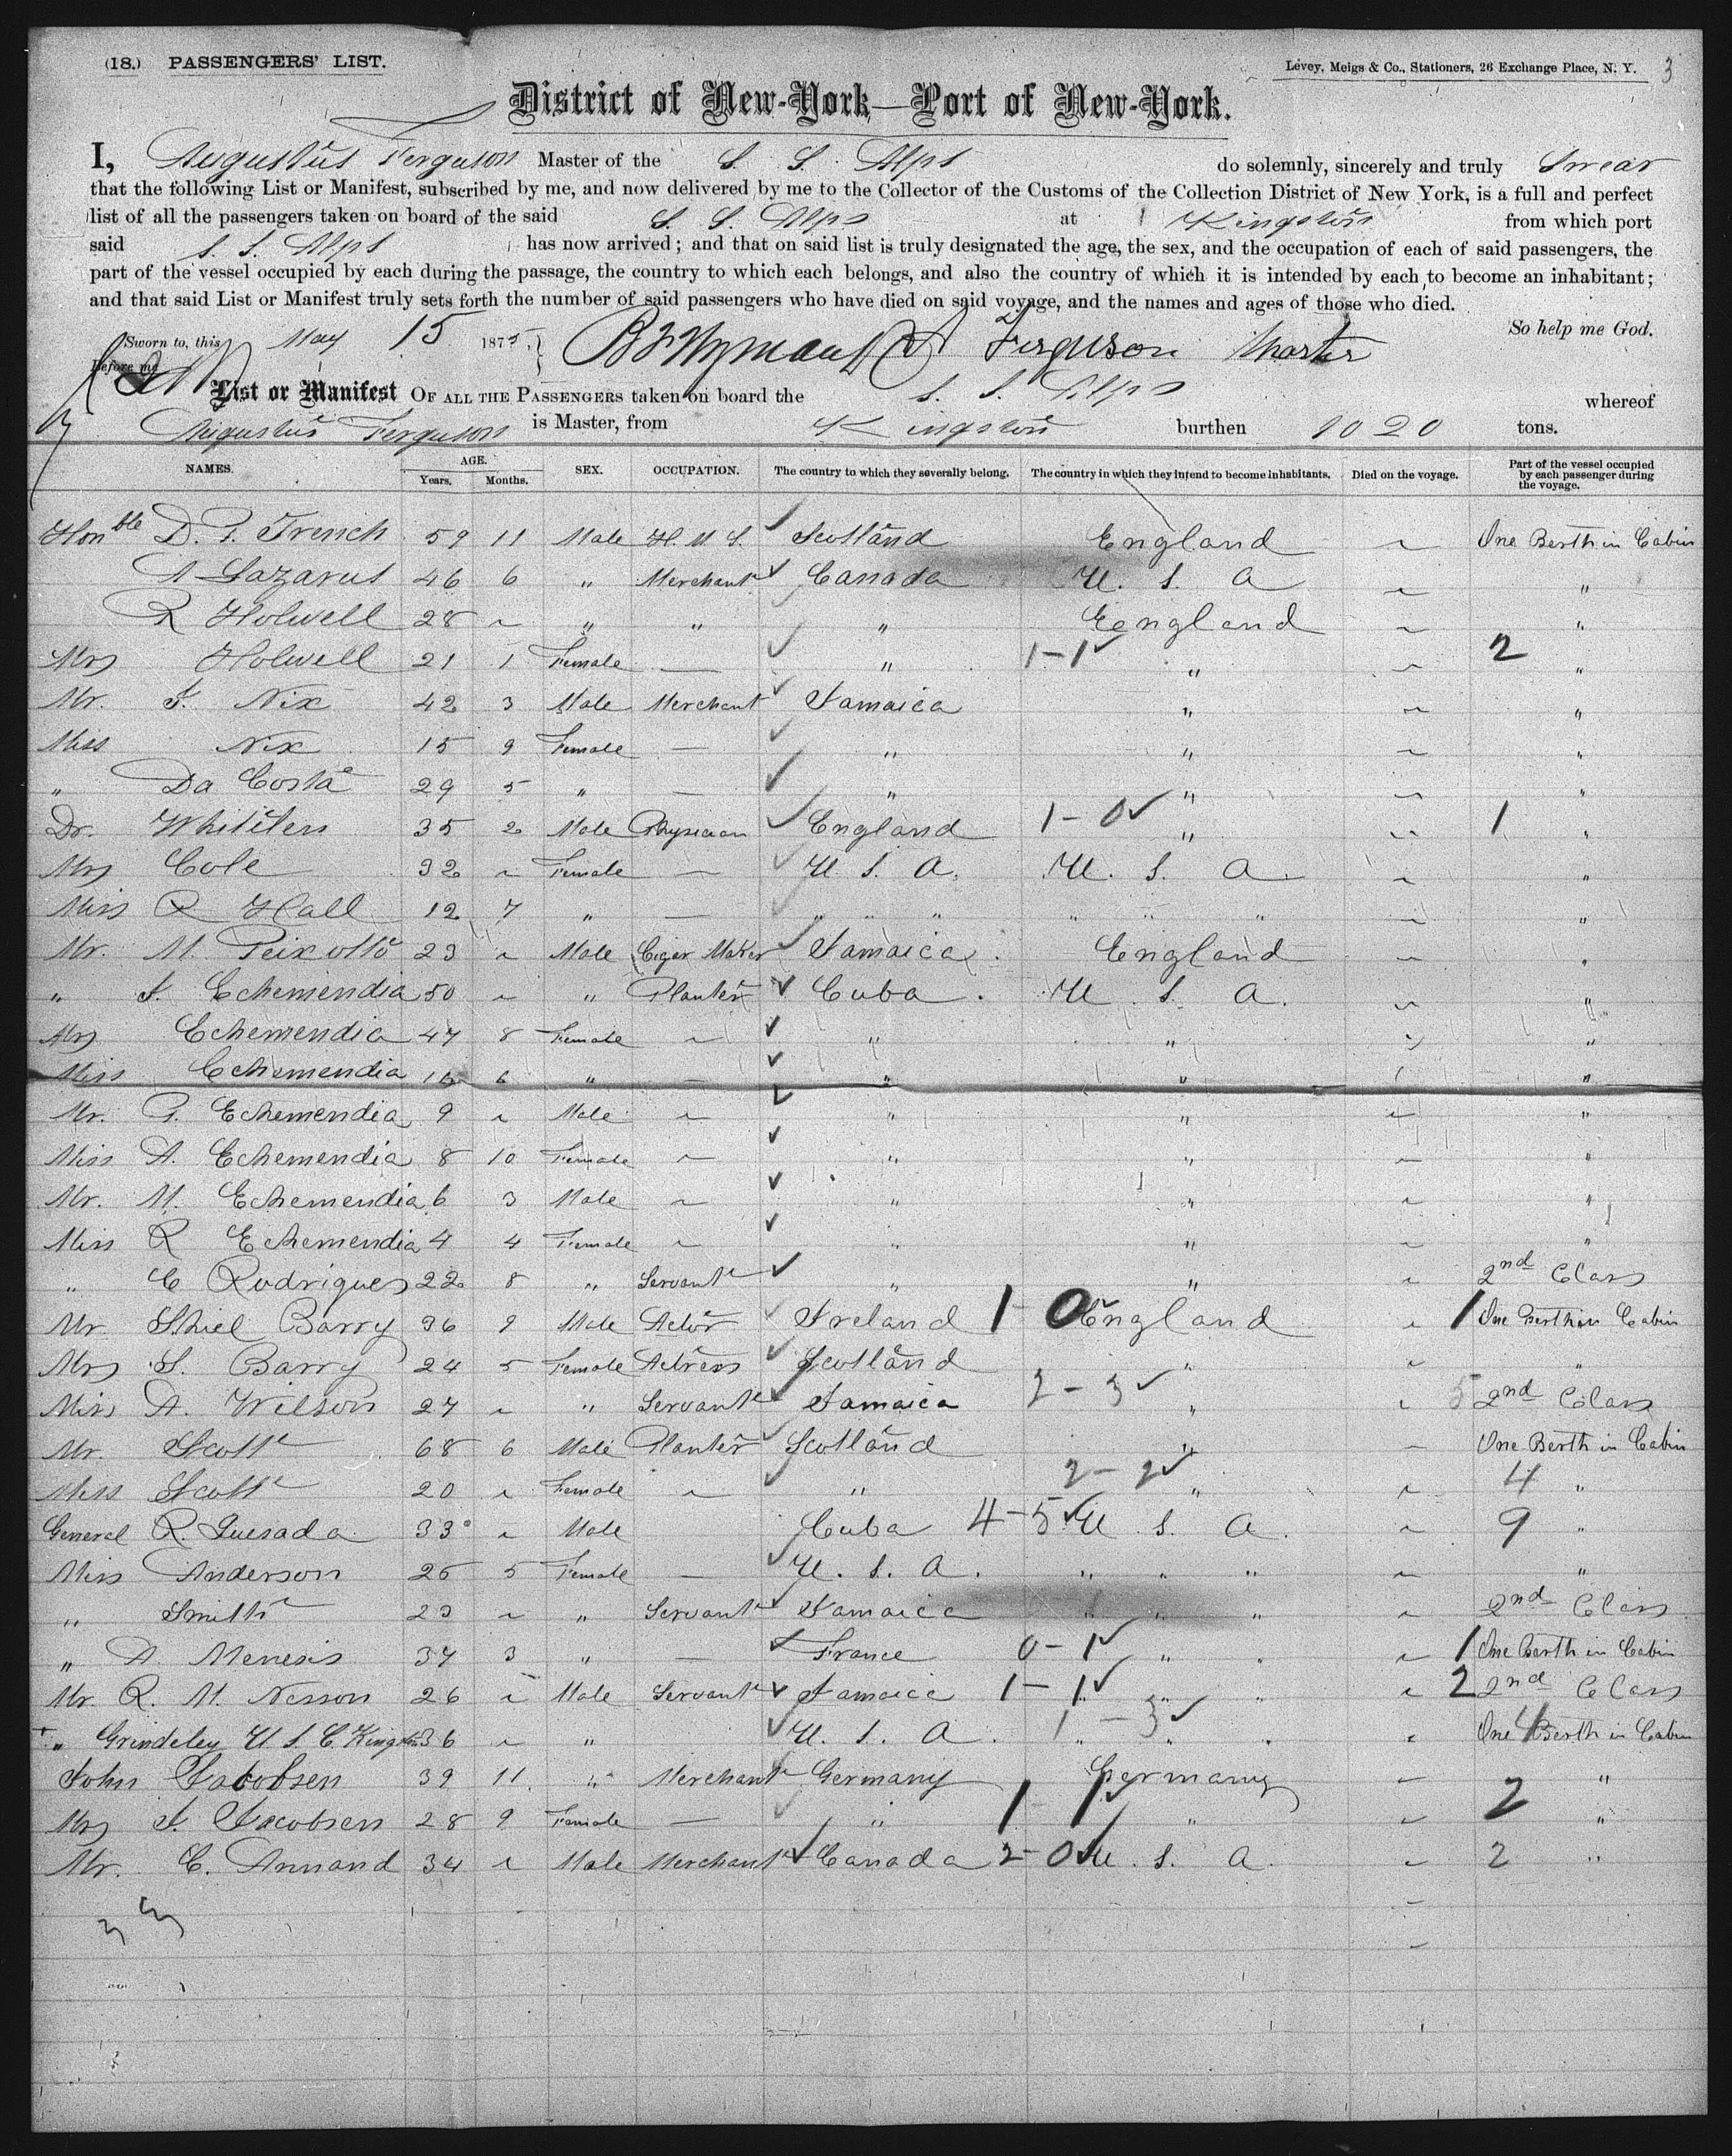 (18.) PASSENGERS' LIST.
Levey, Meigs & Co., Stationers, 26 Exchange Place, N. Y. 3
District of New-York—Port of New-York.
I, Augustus Ferguson Master of the S. S. Alps do solemnly, sincerely and truly Swear
that the following List or Manifest, subscribed by me, and now delivered by me to the Collector of the Customs of the Collection District of New York, is a full and perfect
list of all the passengers taken on board of the said S. S. Alps at Kingston from which port
said S. S. Alps has now arrived; and that on said list is truly designated the age, the sex, and the occupation of each of said passengers, the
part of the vessel occupied by each during the passage, the country to which each belongs, and also the country of which it is intended by each to become an inhabitant;
and that said List or Manifest truly sets forth the number of said passengers who have died on said voyage, and the names and ages of those who died.
So help me God.
Sworn to, this May 15 1875 A Ferguson Master
Before me
List or Manifest OF ALL THE PASSENGERS taken on board the S. S. Alps whereof
Augustus Ferguson is Master, from Kingston burthen 1020 tons.
NAMES. AGE. Years. Months. SEX. OCCUPATION. The country to which they severally belong. The country in which they intend to become inhabitants. Died on the voyage. Part of the vessel occupied by each passenger during the voyage.
Honble D. P. Trench 59 11 Male H. M. S. Scotland England ~ One Berth in Cabin
A Lazarus 46 6 " Merchant Canada U. S. A ~ "
R Holwell 28 ~ " " " England ~ "
Mrs Holwell 21 1 Female — " 1-1 " ~ 2 "
Mr. J. Nix 42 3 Male Merchant Jamaica " ~ "
Miss Nix 15 9 Female — " " ~ "
" Da Costa 29 5 " — " " ~ "
Dr. 35 2 Male Physician England 1-0 " ~ 1 "
Mrs Cole 32 ~ Female — U. S. A. U. S. A. ~ "
Miss R Hall 12 7 " — " " " " " " ~ "
Mr. M. Peixotto 23 ~ Male Cigar Maker Jamaica. England ~ "
" J. Echemendia 50 ~ " Planter Cuba. U. S. A. ~ "
Mrs Echemendia 47 8 Female ~ " " ~ "
Miss Echemendia 6 " — " " "
Mr. P. Echemendia 9 ~ Male ~ " " ~ "
Miss A. Echemendia 8 10 Female ~ " " ~ "
Mr. M. Echemendia 6 3 Male ~ " " ~ "
Miss R Echemendia 4 4 Female ~ " " ~ "
" C Rodrigues 22 8 " Servant " " ~ 2nd Class
Mr. Shiel Barry 36 9 Male Actor Ireland 1-0 England ~ 1 One Berth in Cabin
Mrs S. Barry 24 5 Female Actress Scotland " ~ "
Miss A. Wilson 27 ~ " Servant Jamaica 2-3 " ~ 5 2nd Class
Mr. Scott 68 6 Male Planter Scotland " ~ One Berth in Cabin
Miss Scott 20 ~ Female ~ " 2-2 " ~ 4 "
General R Quesada 33 ~ Male Cuba 4-5 U. S. A. ~ 9 "
Miss Anderson 26 5 Female — U. S. A. " " " ~ "
" Smith 23 ~ " Servant Jamaica " " " ~ 2nd Class
" A. Menesis 37 3 " — France 0-1 " " ~ 1 One Berth in Cabin
Mr. R. M. Nesson 26 ~ Male Servant Jamaica 1-1 " " ~ 2 2nd Class
" Grindeley U. S. C. Kingston 36 ~ " U. S. A. 1-3 " " " ~ 4 One Berth in Cabin
John Jacobsen 39 11 " Merchant Germany Germany ~ "
Mrs J. Jacobsen 28 9 Female — " 1-1 " ~ 2 "
Mr. C. Armand 34 ~ Male Merchant Canada 2-0 U. S. A. ~ 2 "
33